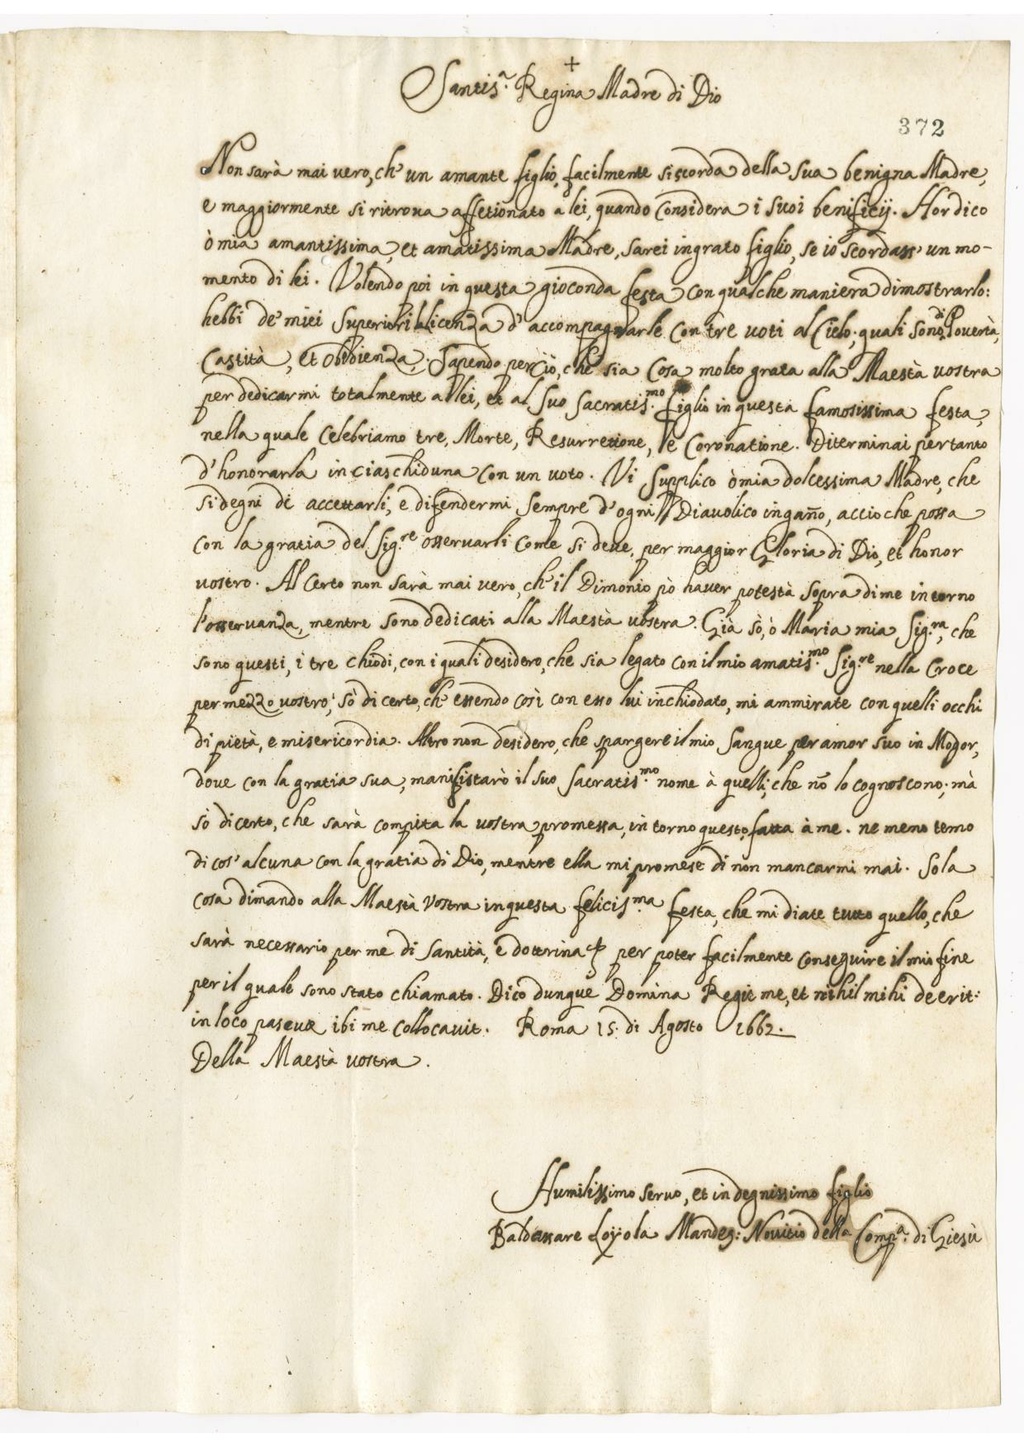 +
Santis.ª Regina Madre di Dio
372
Non sarà mai vero, ch' un amante figlio, facilmente si scorda della sua benigna Madre,
e maggiormente si ritrova affetionato a lei, quando considera i suoi benificij. Hor dico
ò mia amantissima, et amatissima Madre, sarei ingrato figlio, se io scordass' un mo-
mento di lei. Volendo poi in questa gioconda festa con qualche maniera dimostrarlo:
hebbi de' miei Superiori licenza d' accompagnarle con tre voti al Cielo; quali sono, di Povertà,
Castità, et Obedienza. Sapendo perciò, che sia cosa molto grata alla Maestà vostra
per dedicarmi totalmente a lei, et al suo sacratis.mo figlio in questa famosissima festa,
nella quale celebriamo tre, Morte, Resurretione, e Coronatione. Diterminai pertanto
d' honorarla in ciaschiduna con un voto. Vi supplico ò mia dolcessima Madre, che
si degni di accettarli, e difendermi sempre d' ogni Diavolico ingaño, acciò che possa
con la gratia del Sig.re osservarli come si deve, per maggior Gloria di Dio, et honor
vostro. Al certo non sarà mai vero, ch' il Dimonio pò haver potestà sopra di me intorno
l' osservanza, mentre sono dedicati alla Maestà vostra. Già sò, ò Maria mia Sig.ra, che
sono questi, i tre chiodi, con i quali desidero, che sia legato con il mio amatis.mo Sig.re nella Croce
per mezzo vostro; sò di certo, ch' essendo così con esso lui inchiodato, mi ammirate con quelli occhi
di pietà, e misericordia. Altro non desidero, che spargere il mio sangue per amor suo in Mogor,
dove con la gratia sua, manifistarò il suo sacratis.mo nome à quelli, che nõ lo cognoscono; mà
sò di certo, che sarà compita la vostra promessa, intorno questo, fatta à me. ne meno temo
di cos' alcuna con la gratia di Dio, mentre ella mi promese di non mancarmi mai. Sola
cosa dimando alla Maestà vostra in questa felicis.ma festa, che mi diate tutto quello, che
sarà necessario per me di santità, e dottrina per poter facilmente conseguire il mio fine
per il quale sono stato chiamato. Dico dunque Domina Regit me, et nihil mihi deerit:
in loco pascuæ ibi me collocavit. Roma 15. di Agosto 1662.
Della Maestà vostra.
Humilissimo servo, et indegnissimo figlio
Baldassare Loyola Mandez: Novitio della Comp.ª di Giesù